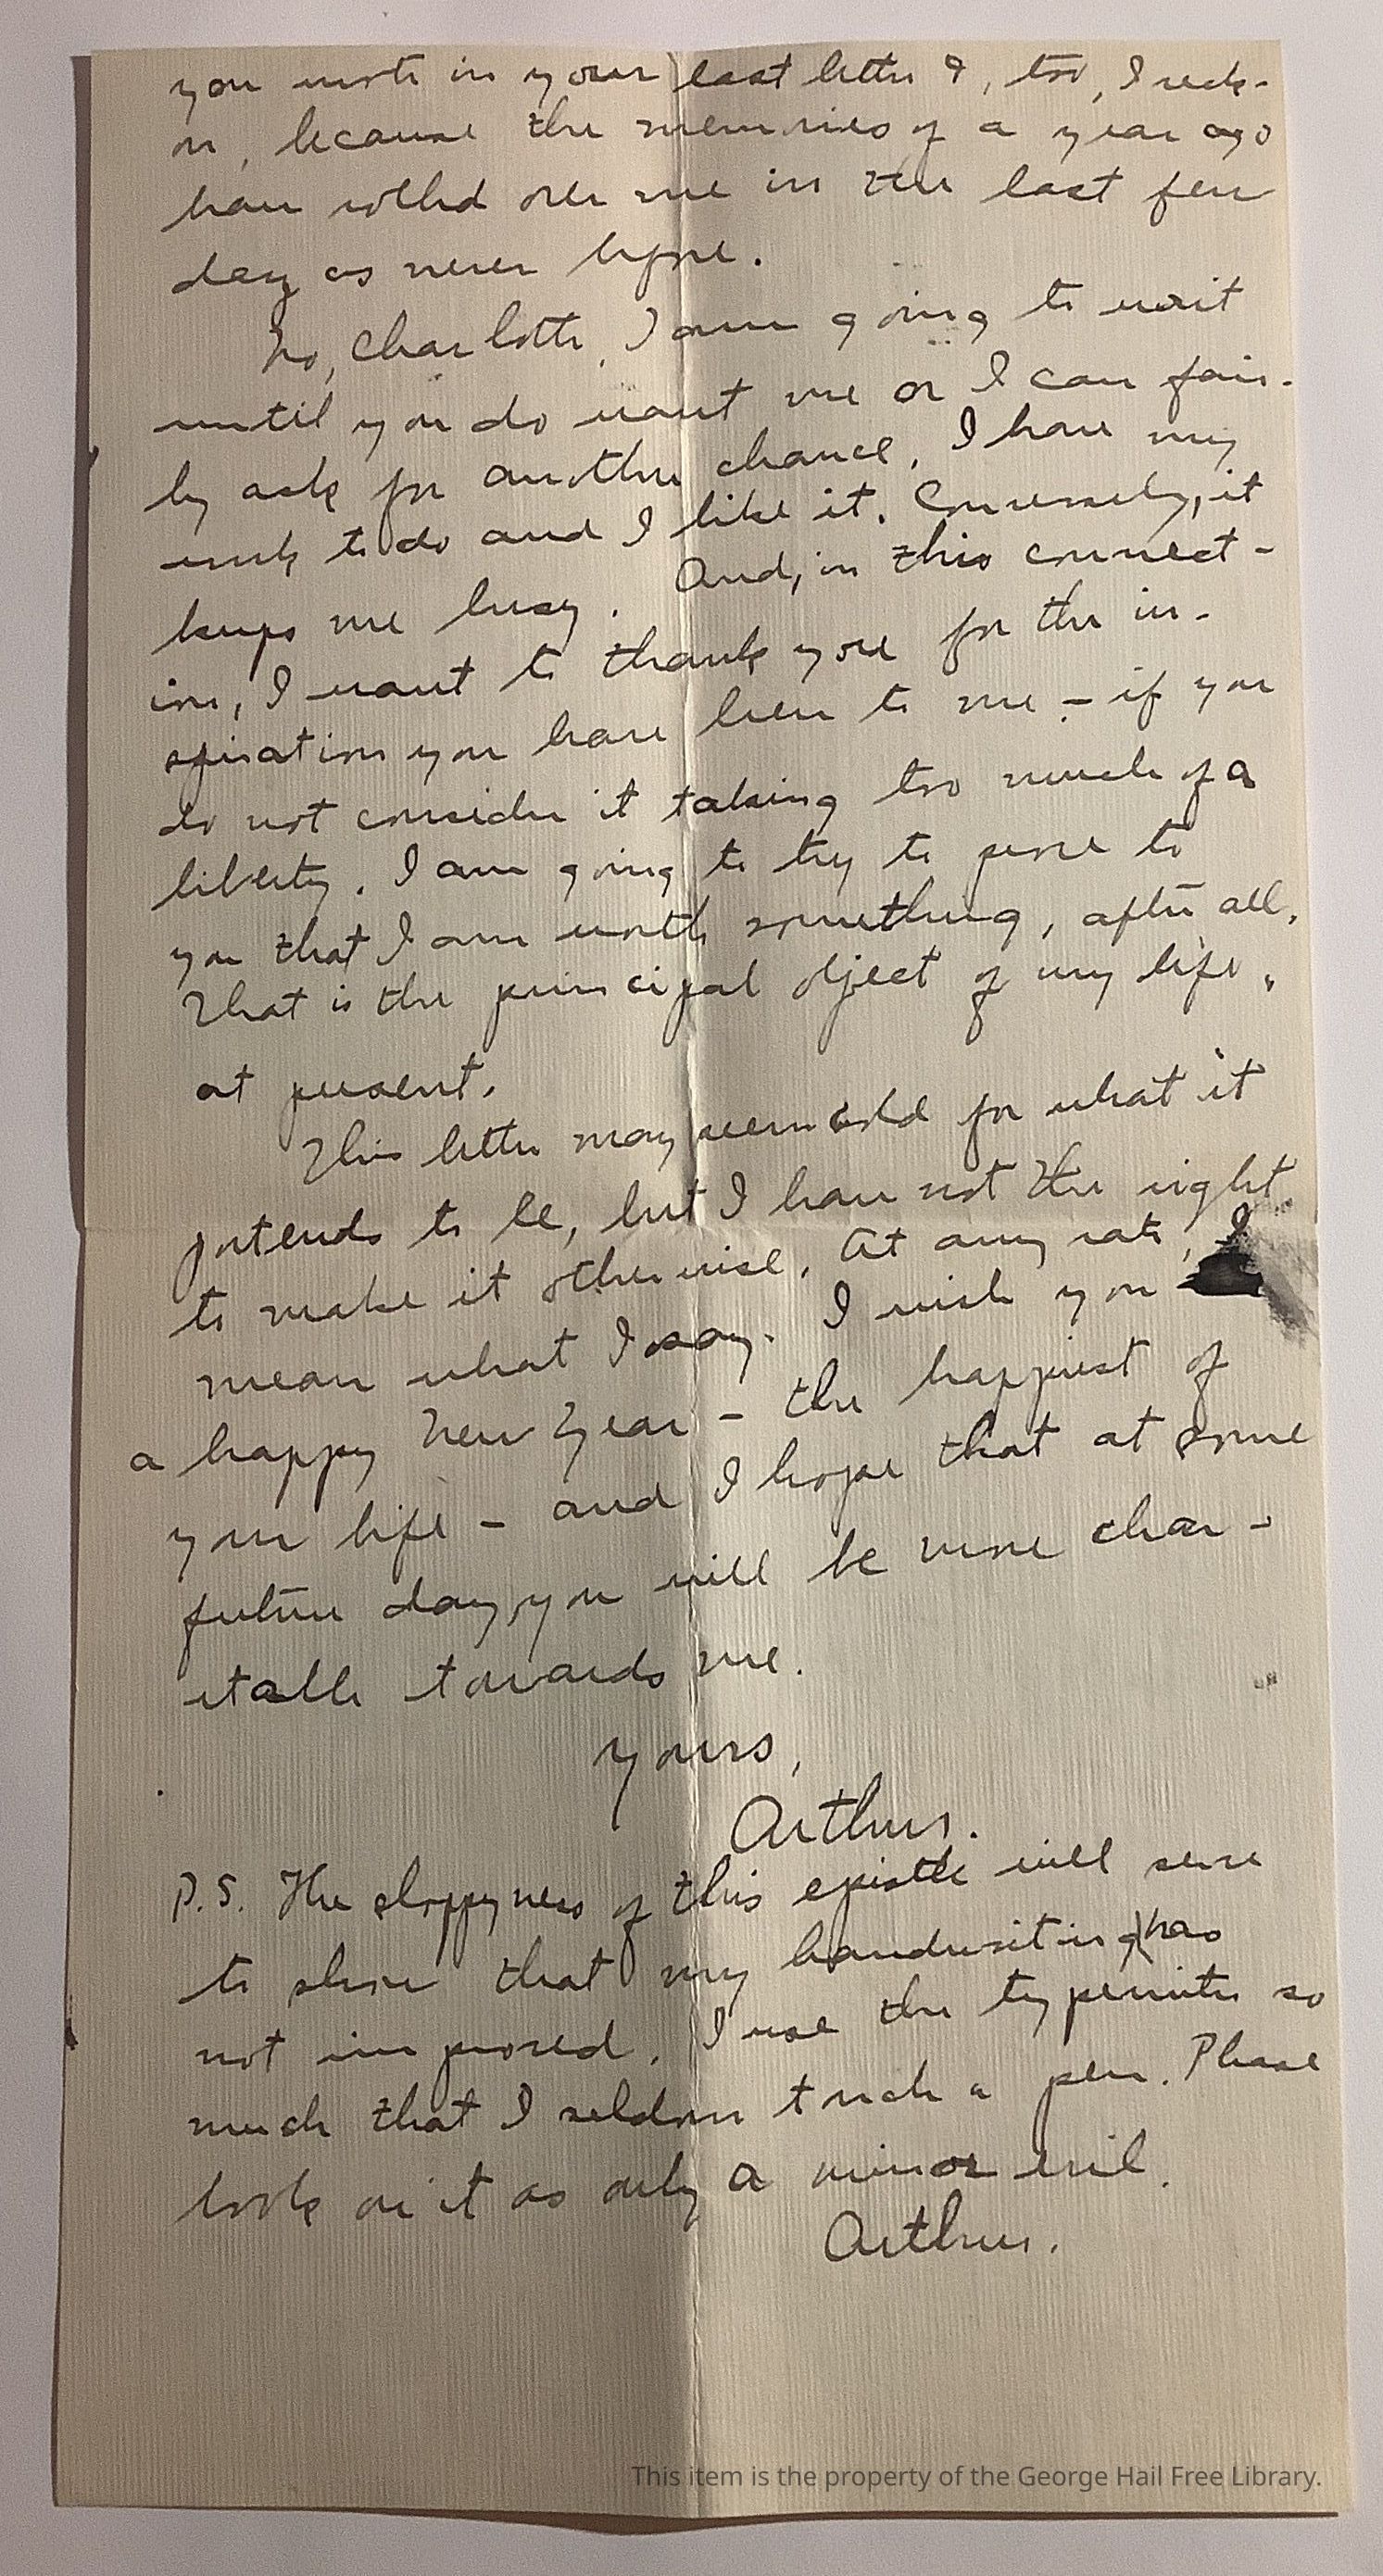 you wrote in your last letter &, too, I reck-
on, because the memories of a year ago
have rolled over me in the last few
day as never before.
No, Charlotte, I am going to wait
until you do want me or I can fair-
ly ask for another chance. I have my
work to do and I like it. Conversely, it
keeps me busy. And, in this connect-
ion, I want to thank you for the in-
spiration you have been to me - if you
do not consider it taking too much of a
liberty. I am going to try to prove to
you that I am worth something, after all.
That is the principal object of my life,
at present.
This letter may seem cold for what it
portends to be, but I have not the right
to make it otherwise. At any rate, I
mean what I say. I wish you
a happy New Year - the happiest of
your life - and I hope that at some
future day, you will be more char-
itable towards me.
Yours,
Arthur.
P.S. The sloppyness of this epistle will serve
to show that my handwriting has
not improved. I use the typewriter so
much that I seldom touch a pen. Please
look on it as only a minor evil.
Arthur.
This item is the property of the George Hail Free Library.